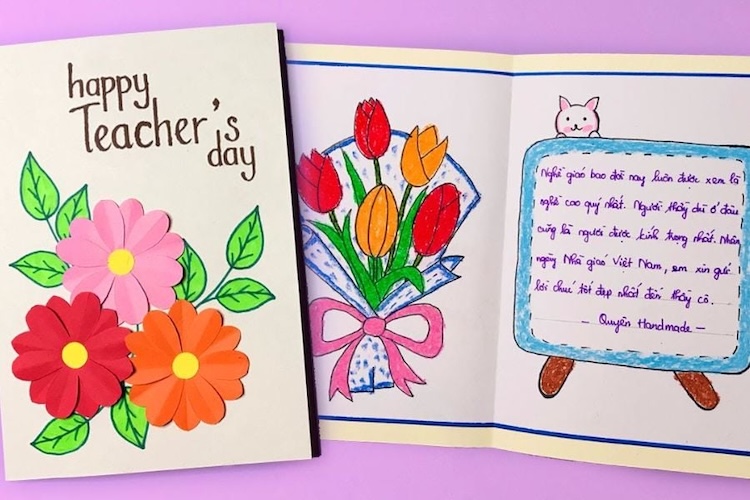 happy
Teacher's
day
Nghề giáo bao đời nay luôn được xem là
nghề cao quý nhất. Người thầy dù ở đâu
cũng là người được kính trọng nhất. Nhân
ngày Nhà giáo Việt Nam, em xin gửi
lời chúc tốt đẹp nhất đến thầy cô.
- Quyên Handmade -